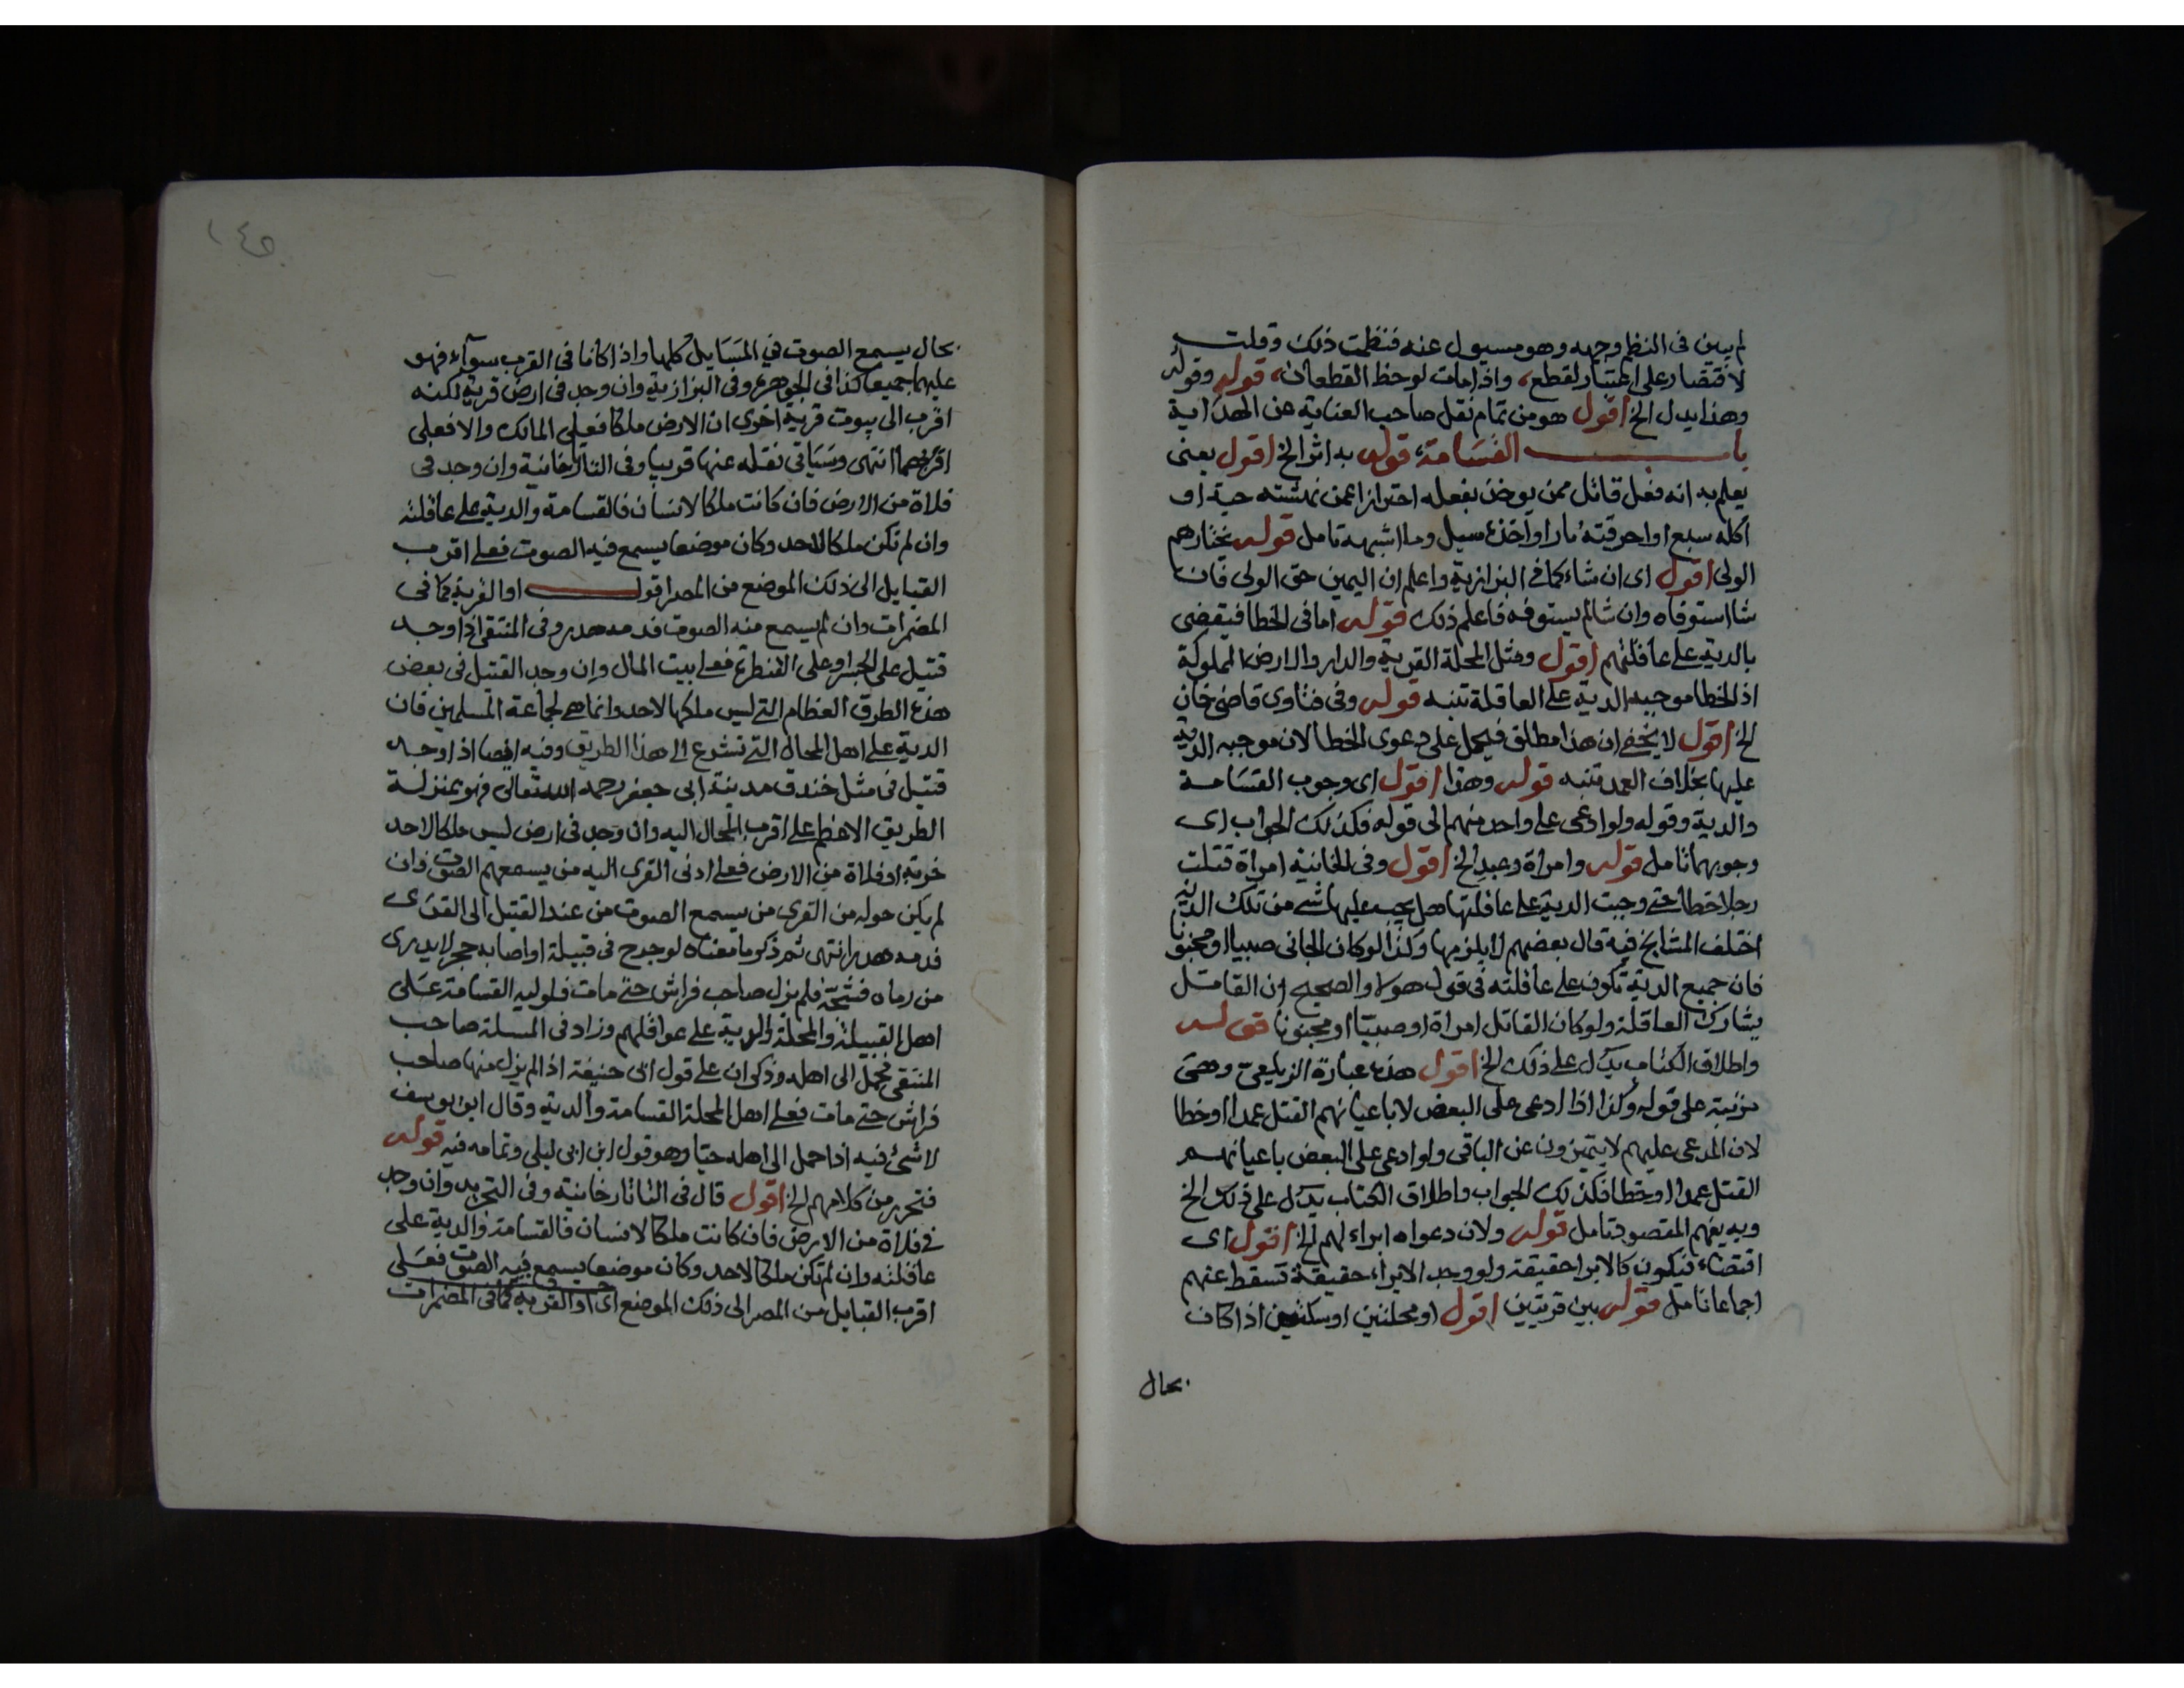 لم يبين فى النظم وجهه وهو مسيول عنه فنظمت ذلك وقلت
لاقتضار على لقطع، واذا مات لوحظ القطعان، قوله وقوله
وهذا يدل الخ اقول هو من تمام نقل صاحب العناية عن الهداية
باب القسامة، قوله به اثر الخ اقول يعنى
يعلم به انه فعل قاتل ممن يوخذ بفعله احترازا عمن نهشته حية او
اكله سبع او احرقته نار او اخذه سيل وما اشبهه تامل قوله يختارهم
الولى اقول اى ان شاء كما فى البزازية واعلم ان اليمين حق الولى فان
شا استوفاه وان شا لم يستوفه فاعلم ذلك قوله اما فى الخطا فيقضى
بالدية على عاقلتهم اقول ومثل المحلة القرية والدار والارض المملوكة
اذ الخطا موجبه الدية على العاقلة تنبه قوله وفى فتاوى قاضى خان
الخ اقول لا يخفى ان هذا مطلق فيحمل على دعوى الخطا لان موجبه الدية
عليها بخلاف العمد تنبه قوله وهذا اقول اى وجوب القسامة
والدية وقوله ولو ادعى على واحد منهم الى قوله فكذلك الجواب اى
وجوبهما تامل قوله وامراة وعبد الخ اقول وفى الخانية امراة قتلت
رجلا خطا حتى وجبت الدية على عاقلتها هل يجب عليها شى من تلك الدية
اختلف المشايخ فيه قال بعضهم لا يلزمها وكذا لو كان الجانى صبيا او مجنونا
فان جميع الدية تكون على عاقلته فى قول هولا والصحيح ان القاتل
يشارك العاقلة ولو كان القاتل امراة او صبيا او مجنونا قوله
واطلاق الكتاب يدل على ذلك الخ اقول هذه عبارة الزيلعى وهى
مرتبة على قوله وكذا اذا ادعى على البعض لا باعيانهم القتل عمدا او خطا
لان المدعى عليهم لا يتميزون عن الباقى ولو ادعى على البعض باعيانهم
القتل عمدا او خطا فكذلك الجواب واطلاق الكتاب يدل على ذلك الخ
وبه يفهم المقصود تامل قوله ولان دعواه ابراء لهم الخ اقول اى
اقتضاء فيكون كالابرا حقيقة ولو وجد الابراء حقيقة تسقط عنهم
اجماعا تامل قوله بين قريتين اقول او محلتين او سكتين اذا كان
بحال
١٤٥
بحال يسمع الصوت فى المسايل كلها واذا كانا فى القرب سوآء فهو
عليهما جميعا كذا فى الجوهرة وفى البزازية وان وجد فى ارض قرية لكنه
اقرب الى بيوت قرية اخرى ان الارض ملكا فعلى المالك والا فعلى
اقربهما انتهى وسياتى نقله عنها قريبا وفى التاتارخانية وان وجد فى
فلاة من الارض فان كانت ملكا لانسان فالقسامة والدية على عاقلته
وان لم تكن ملكا لاحد وكان موضعا يسمع فيه الصوت فعلى اقرب
القبايل الى ذلك الموضع من المصر اقول او القرية كما فى
المضمرات وان لم يسمع منه الصوت فدمه هدر وفى المنتقى اذا وجد
قتيل على الجسر او على القنطرة فعلى بيت المال وان وجد القتيل فى بعض
هذه الطرق العظام التى ليس ملكها لاحد وانما هى لجماعة المسلمين فان
الدية على اهل المحال التى تشرع الى هذا الطريق وفيه ايضا اذا وجد
قتيل فى مثل خندق مدينة ابى جعفر رحمه الله تعالى فهو بمنزلة
الطريق الاعظم على اقرب المحال اليه وان وجد فى ارض ليس ملكا لاحد
خربة او فلاة من الارض فعلى ادنى القرى اليه من يسمعهم الصوت فان
لم يكن حوله من القرى من يسمع الصوت من عند القتيل الى القرى
فدمه هدر انتهى ثم ذكر ما معناه لو جرح فى قبيلة او اصابه حجر لا يدرى
من رماه فشجه فلم يزل صاحب فراش حتى مات فلوليه القسامة على
اهل القبيلة والمحلة والدية على عواقلهم وزاد فى المسلة صاحب
المنتقى فحمل الى اهله وذكر ان على قول ابى حنيفة اذا لم يزل منها صاحب
فراش حتى مات فعلى اهل المحلة القسامة والدية وقال ابو يوسف
لا شئ فيه اذا حمل الى اهله حيا وهو قول ابن ابى ليلى وتمامه فيه قوله
فتحرر من كلامهم الخ اقول قال فى التاتارخانية وفى التجريد وان وجد
فى فلاة من الارض فان كانت ملكا لانسان فالقسامة والدية على
عاقلته وان لم تكن ملكا لاحد وكان موضعا يسمع فيه الصوت فعلى
اقرب القبايل من المصر الى ذلك الموضع اى او القرية كما فى المضمرات